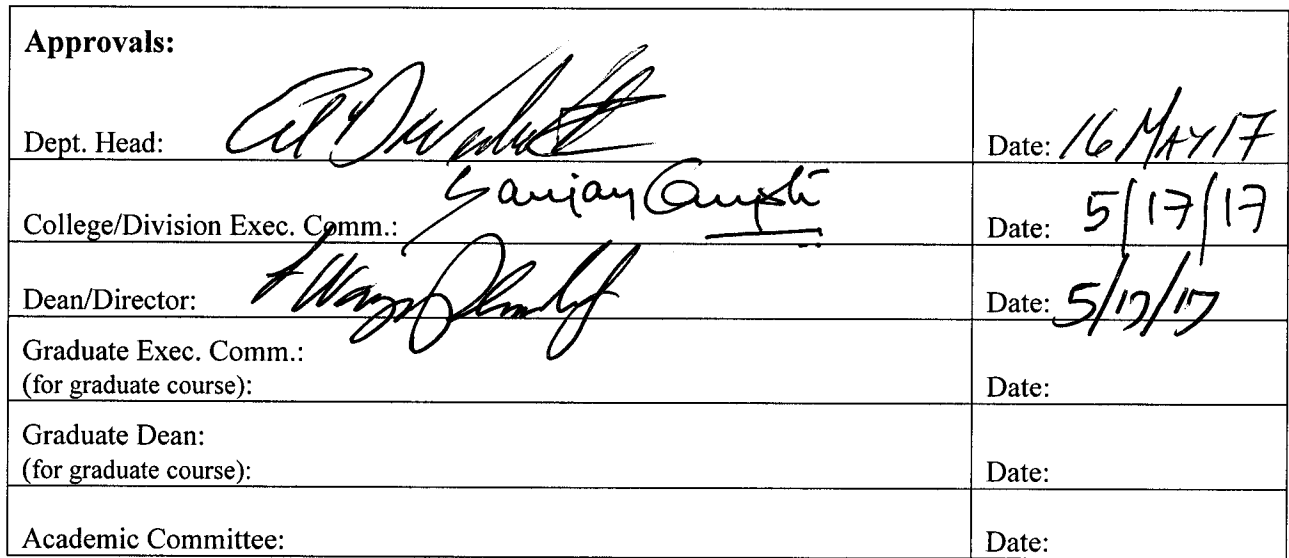 Approvals:
Dept. Head: Date: 16 MAY 17
College/Division Exec. Comm.: Sanjay Gupta Date: 5/17/17
Dean/Director: Date: 5/17/17
Graduate Exec. Comm.:
(for graduate course): Date:
Graduate Dean:
(for graduate course): Date:
Academic Committee: Date: